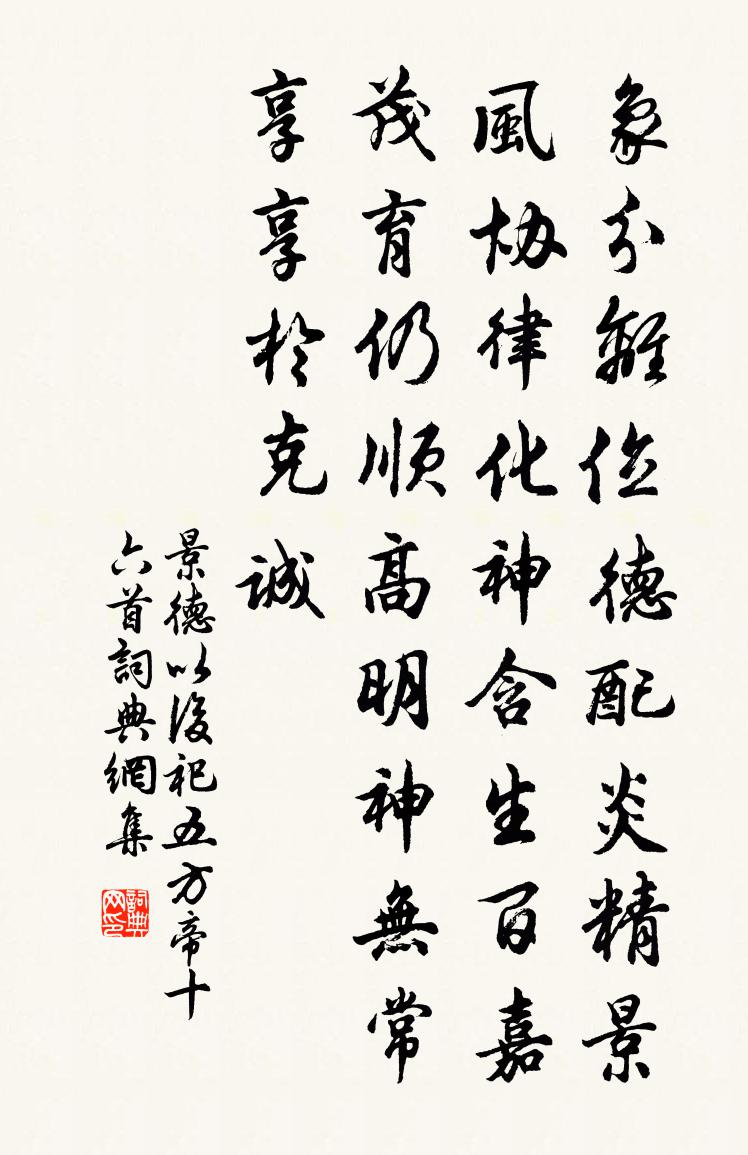 象分離位德配炎精景
風協律化神含生百嘉
茂育仍順高明神無常
享享於克誠
景德以後祀五方帝十
六首詞典網集
詞典网印